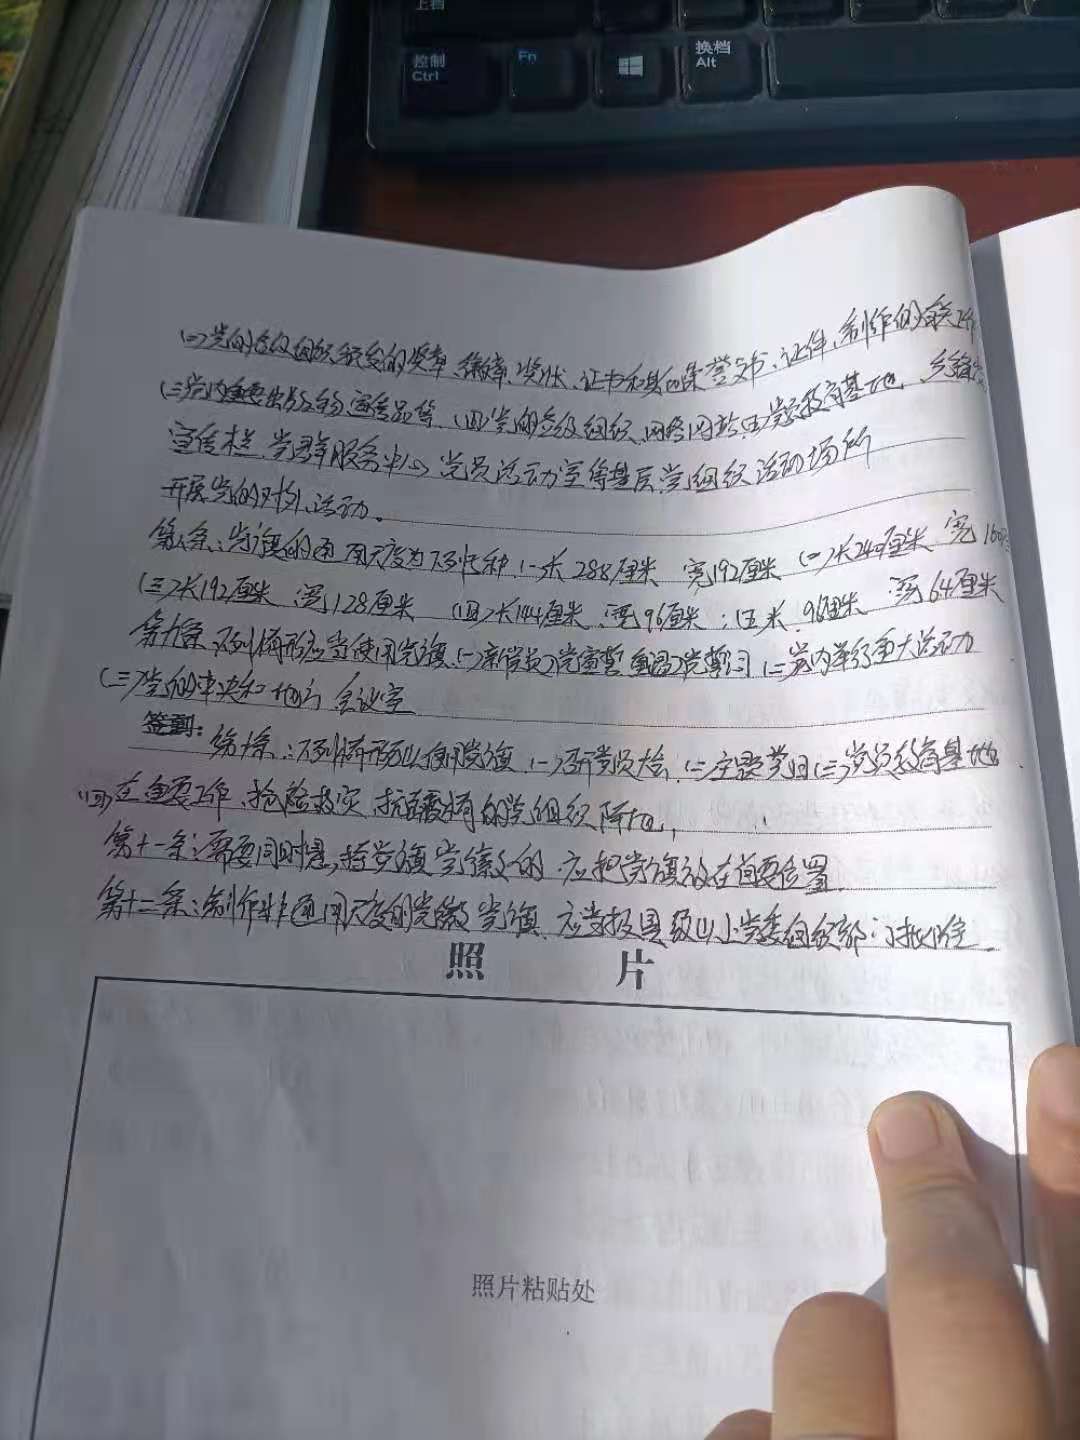 上档
控制
Ctrl
Fn
换档
Alt
(二)党的各级组织颁发的奖章、徽章、奖状、证书和其他荣誉文书、证件,制作的
(三)党内重要出版物、宣传品等 (四)党的各级组织网络网站 (五)党员教育基地、
宣传栏、党群服务中心、党员活动室等基层党组织活动场所
开展党的对外活动。
第八条:党旗的通用尺度为下列五种(一)长288厘米 宽192厘米 (二)长240厘米 宽160
(三)长192厘米 宽128厘米 (四)长144厘米,宽96厘米;(五)长 96厘米 宽64厘米
第九条 下列情形应当使用党旗(一)新党员入党宣誓 重温入党誓词 (二)党内举行重大活动
(三)党的中央和地方 会议室
签到:第十条:下列情形可以使用党旗 (一)召开党员大会 (二)主题党日 (三)党员教育基地
(四)在重要工作、抢险救灾 的党组织阵地,
第十一条:需要同时悬挂党旗 党徽的 应把党旗放在首要位置
第十二条:制作非通用尺度的党徽党旗 应当报县级以上党委组织部门批准
照 片
照片粘贴处